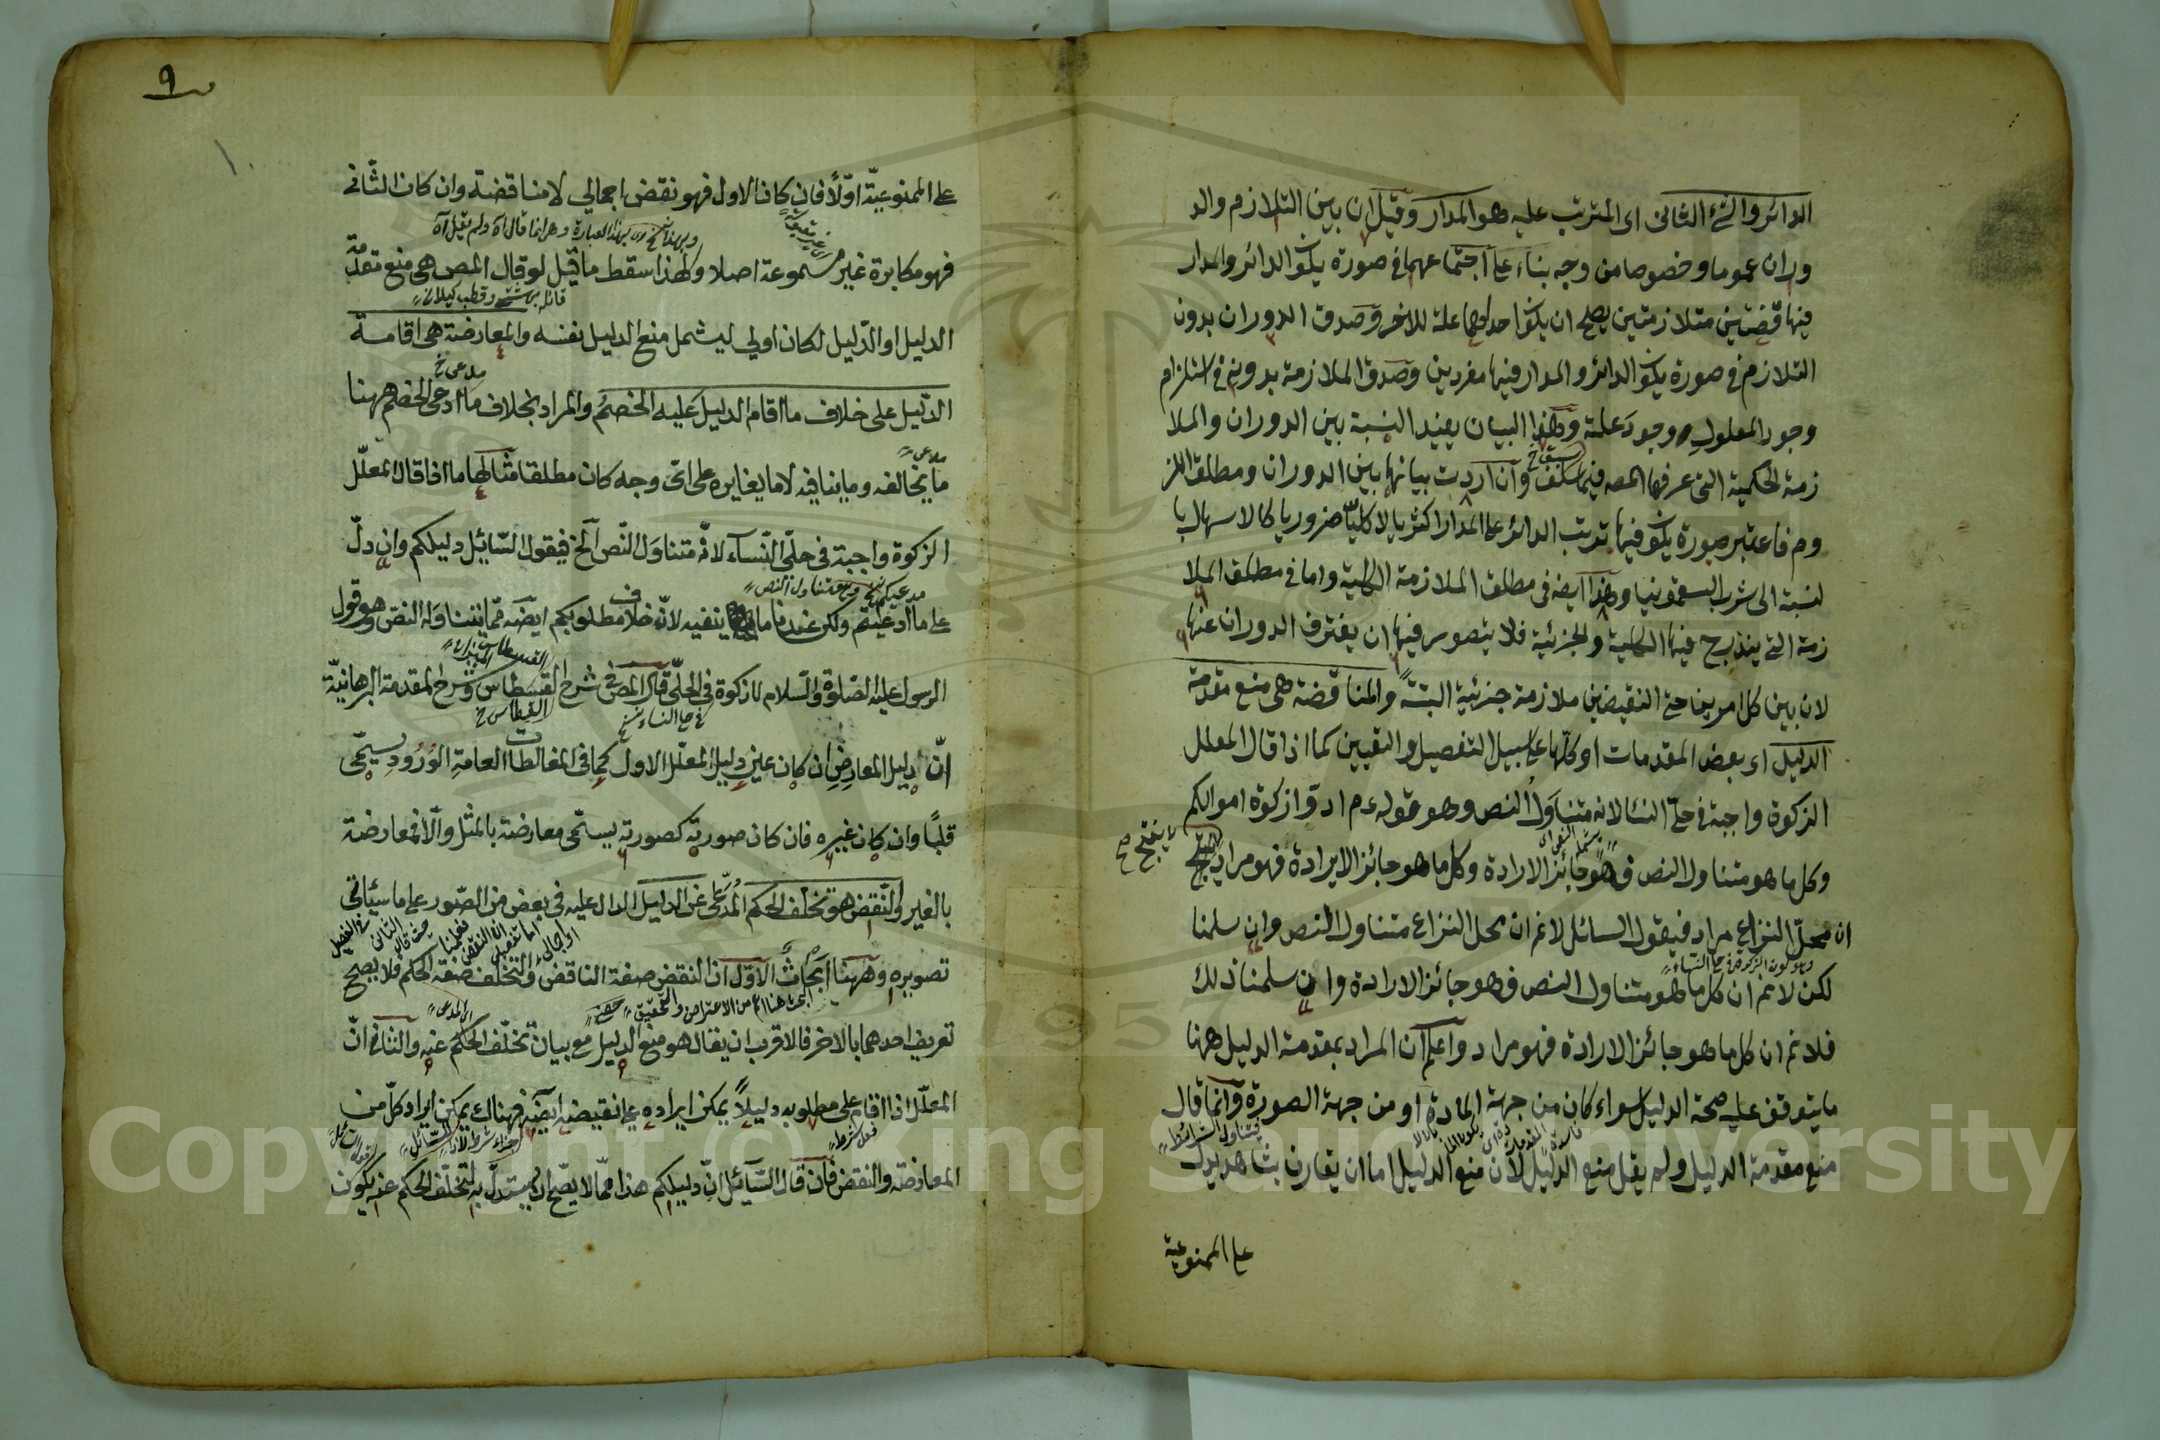 الدائر والشئ الثانى اى المترتب عليه هو المدار وقيل ان بين التلازم والد
وران عموما وخصوصا من وجه بناء على اجتماعهما فى صورة يكون الدائر والمدار
فيها قضيتين متلازمتين يصلح ان يكون احداهما علة للاخر وصدق الدوران بدون
التلازم فى صورة يكون الدائر والمدار فيها مفردين وصدق الملازمة بدونه فى استلزام
وجود المعلول وجود علته وهذا البيان يفيد النسبة بين الدوران والملا
زمة الحكمية التى عرفها المصه فيما سلف وان اردت بيانها بين الدوران ومطلق اللز
وم فاعتبر صورة يكون فيها ترتب الدائر على المدار اكثريا لا كليا ضروريا كالاسهال با
لنسبة الى شرب السقمونيا وهذا ايضه فى مطلق الملازمة الكلية واما فى مطلق الملا
زمة التى يندرج فيها الكلية والجزئية فلا يتصور فيها ان يفترق الدوران عنها
لان بين كل امرين حتى النقيضين ملازمة جزئية البتة والمناقضة هى منع مقدمة
الدليل اى بعض المقدمات او كلها على سبيل التفصيل والتعيين كما اذا قال المعلل
الزكوة واجبة فى حلى النسا لانه متناول النص وهو قوله عم ادوا زكوة اموالكم
وكل ما هو متناول النص فهو جائز الارادة وكل ما هو جائز الارادة فهو مراد ينتج
ان محل النزاع مراد فيقول السائل لا نم ان محل النزاع متناول النص وان سلمنا
لكن لا نم ان كل ما هو متناول النص فهو جائز الارادة وان سلمنا ذلك
فلا نم ان كل ما هو جائز الارادة فهو مراد واعلم ان المراد بمقدمة الدليل ههنا
ما يتوقف عليه صحة الدليل سواء كان من جهة المادة او من جهة الصورة وانما قال
منع مقدمة الدليل ولم يقل منع الدليل لان منع الدليل اما ان يقارن بشاهد يدل
على الممنوعية
٩
١٠
على الممنوعيّة اوّلا فان كان الاول فهو نقض اجمالي لا مناقضة وان كان الثانى
فهو مكابرة غير مسموعة اصلا ولهذا سقط ما قيل لو قال المص هى منع مقدمة
الدليل او الدّليل لكان اولى ليشمل منع الدليل نفسه والمعارضة هى اقامة
الدّليل على خلاف ما اقام الدليل عليه الخصم والمراد بخلاف ما ادعى الخصم ههنا
ما يخالفه وما ينافيه لا ما يغايره على اىّ وجه كان مطلقا مثالها ما اذا قال المعلّل
الزكوة واجبة فى حلى النّسآء لانّه متناول النّص الخ فيقول السّائل دليلكم وان دلّ
على ما ادعيتم ولكن عندنا ما ينفيه لانّه خلاف مطلوبكم ايضه ممّا يتناوله النص وهو قول
الرسول عليه الصّلوة والسّلام لا زكوة فى الحلىّ قال المص فى شرح القسطاس وشرح المقدمة البرهانيّة
انّ دليل المعارض ان كان عين دليل المعلّل الاول كما فى المغالطات العامة الورود يسمّى
قلبًا وان كان غيره فان كان صورته كصورته يسمّى معارضة بالمثل والّا فمعارضة
بالغير والنّقض هو تخلّف الحكم المدّعى عن الدليل الدال عليه فى بعض من الصّور على ما سيأتى
تصويره وههنا ابحاث الاوّل ان النقض صفة الناقض والتخلّف صفة الحكم فلا يصح
تعريف احدهما بالاخر فالاقرب ان يقال هو منع الدليل مع بيان تخلّف الحكم عنه والثانى انّ
المعلّل اذا اقام على مطلوبه دليلاً يمكن ايراده على نقيضه ايضه فهناك يمكن ايراد كلّ من
المعارضة والنقض فان قال السّائل انّ دليلكم هذا ممّا لا يصحّ ان يستدلّ به لتخلّف الحكم عنه يكون
Copyright © King Saud University
1957